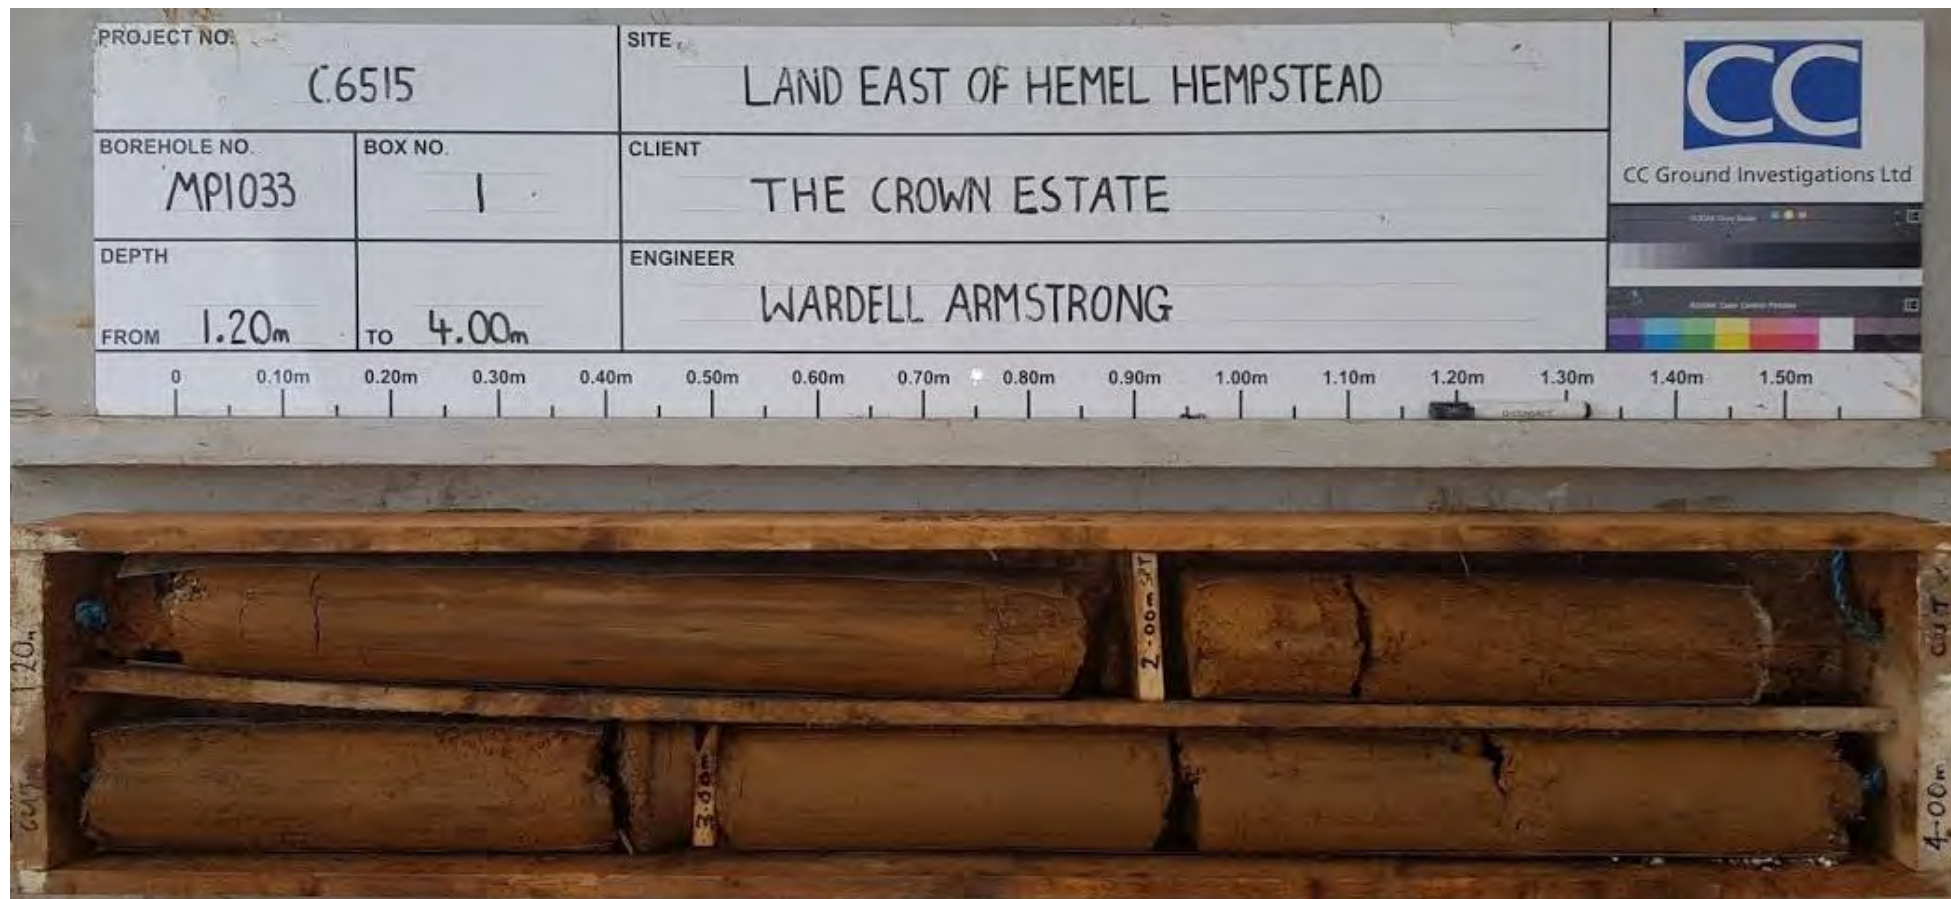 PROJECT NO.
C6515
SITE
LAND EAST OF HEMEL HEMPSTEAD
CC
CC Ground Investigations Ltd
BOREHOLE NO.
MP1033
BOX NO.
1
CLIENT
THE CROWN ESTATE
DEPTH
FROM 1.20m
TO 4.00m
ENGINEER
WARDELL ARMSTRONG
0 0.10m 0.20m 0.30m 0.40m 0.50m 0.60m 0.70m 0.80m 0.90m 1.00m 1.10m 1.20m 1.30m 1.40m 1.50m
1.20m
2.00m SPT
CUT
CUT
3.00m
4.00m